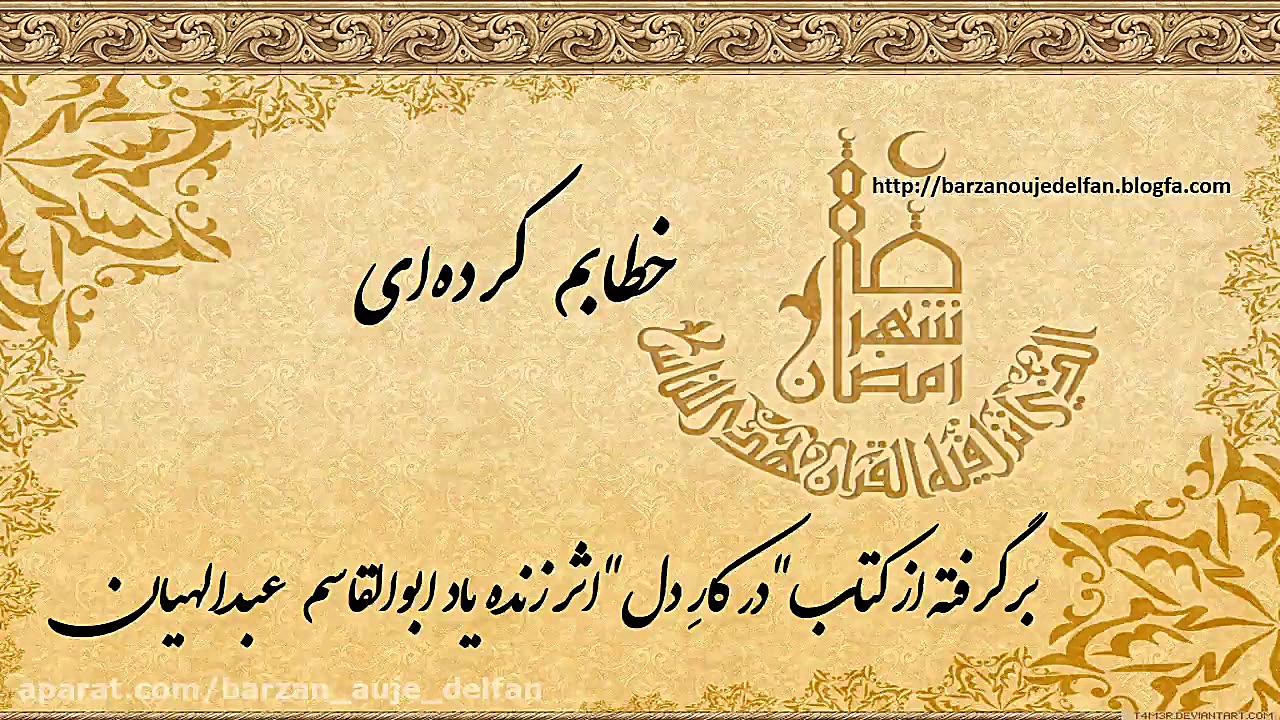 http://barzanoujedelfan.blogfa.com
خطابم کرده‌ای
شهر
رمضان
الذي أنزل فيه القرآن هدى للناس
برگرفته از کتاب "در کارِ دل" اثر زنده یاد ابوالقاسم عبدالهیان
aparat.com/barzan_auje_delfan
T4M3R.DEVIANTART.COM